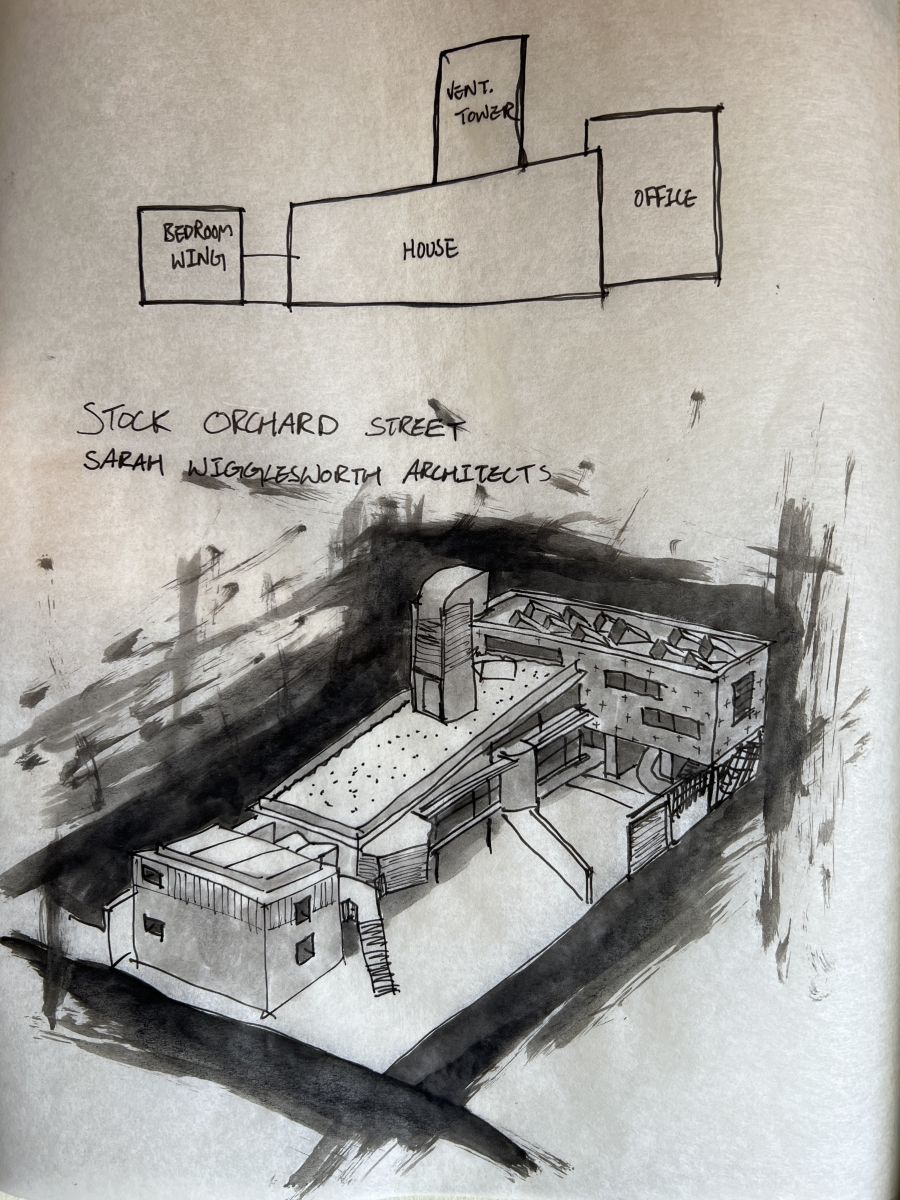 VENT.
TOWER
OFFICE
BEDROOM
WING
HOUSE
STOCK ORCHARD STREET
SARAH WIGGLESWORTH ARCHITECTS